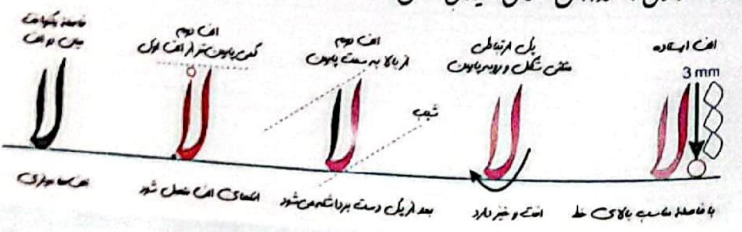 الف ایستاده
3 mm
با فاصله مناسب بالای خط
پل ارتباطی
منحنی شکل و رو به پایین
افت و خیز دارد
الف دوم
از بالا به سمت پایین
شیب
بعد از یک دست برداشته می‌شود
الف دوم
کمی پایین‌تر از الف اول
انتهای الف متصل شود
فاصله یکنواخت
بین دو الف
الف‌ها موازی